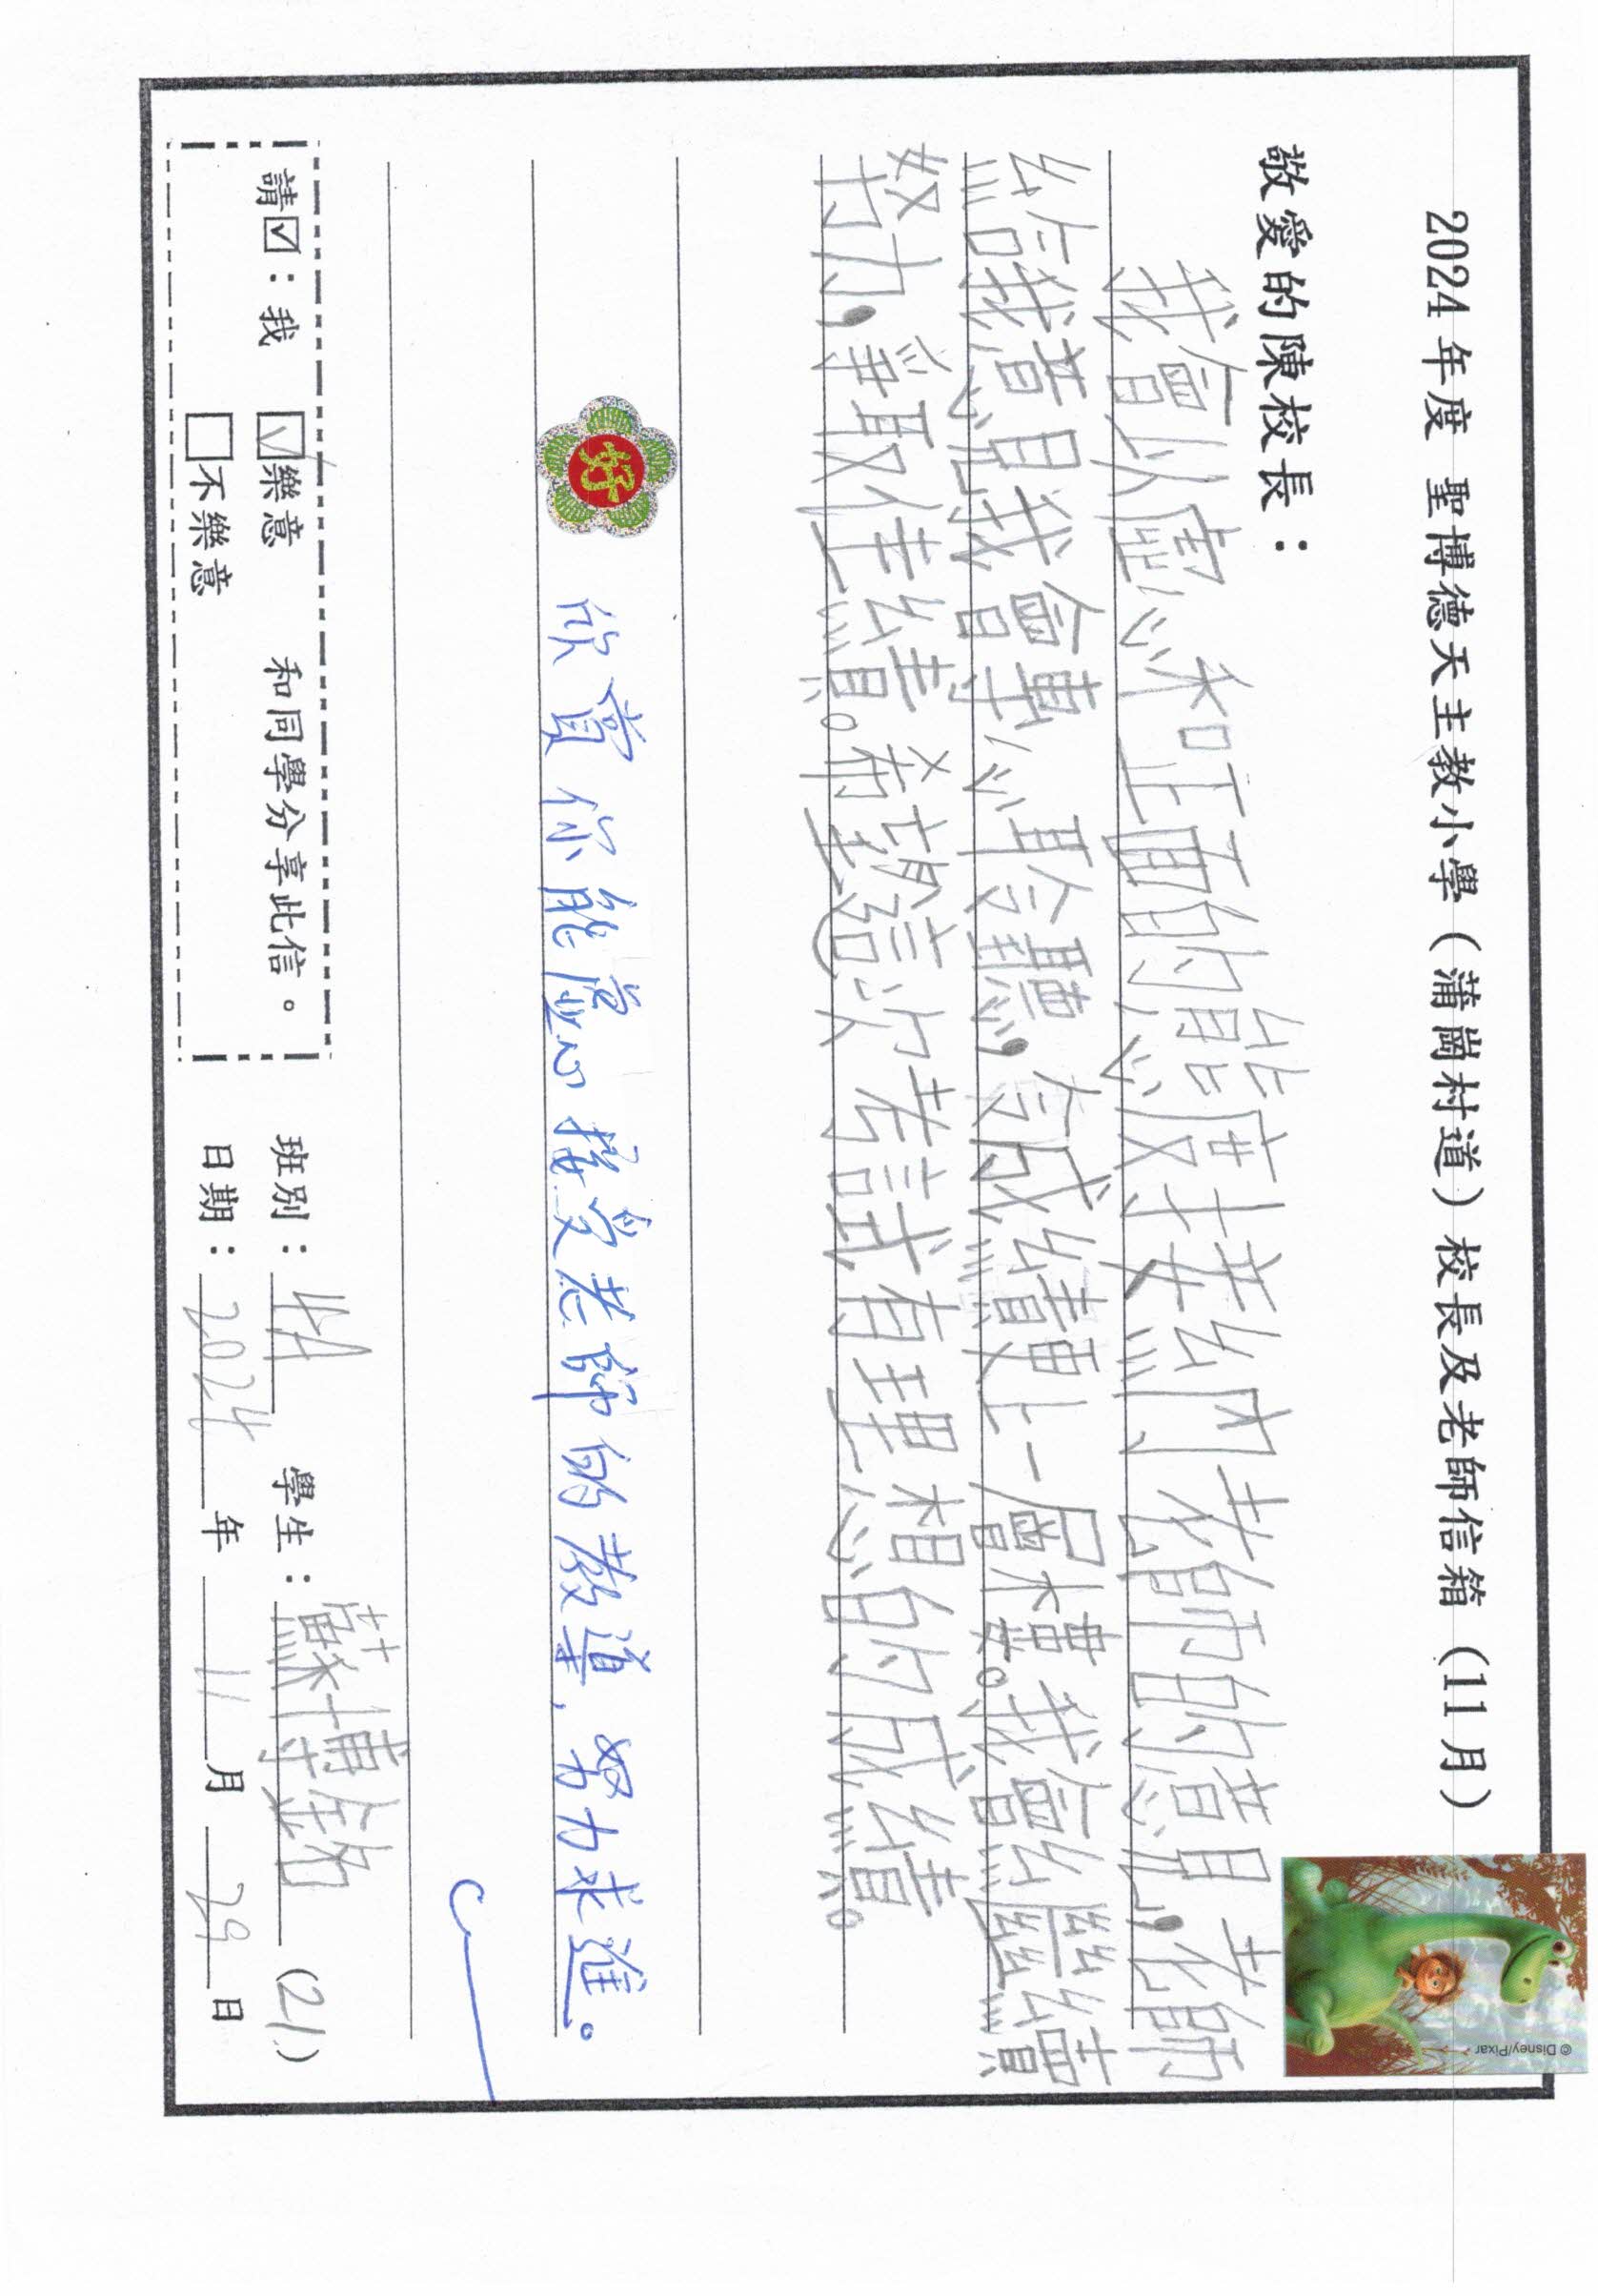 2024 年度 聖博德天主教小學（蒲崗村道）校長及老師信箱（11 月）
敬愛的陳校長：
我會以虛心和正面的態度接納老師的意見，老師
給我意見我會專心聆聽，令成績更上一層樓。我會繼續
努力，爭取佳績。希望這次考試有理想的成績。
好
欣賞你能虛心接受老師的教導，努力求進。
請☑：我 ☑樂意 和同學分享此信。
□不樂意
班別：4A 學生：蘇博銘 (21)
日期：2024 年 11 月 29 日
© Disney/Pixar